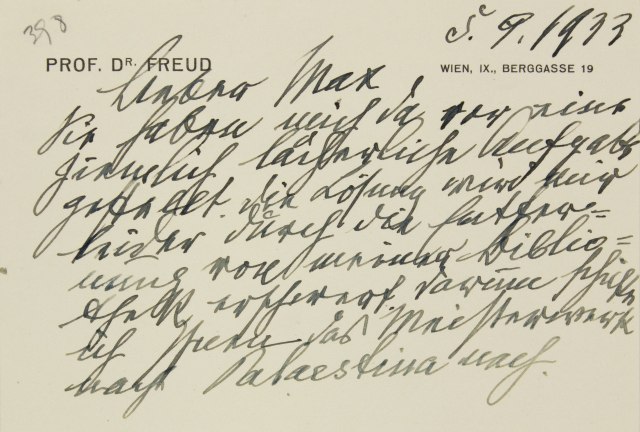 398
5. 9. 1933
PROF. DR. FREUD
WIEN, IX., BERGGASSE 19
Lieber Max
Sie haben mich da vor eine
ziemlich lächerliche Aufgabe
gestellt. die Lösung wird mir
leider durch die Entfer=
nung von meiner Biblio=
thek erschwert. darum schicke
ich Ihnen das Meisterwerk
nach Palaestina nach.